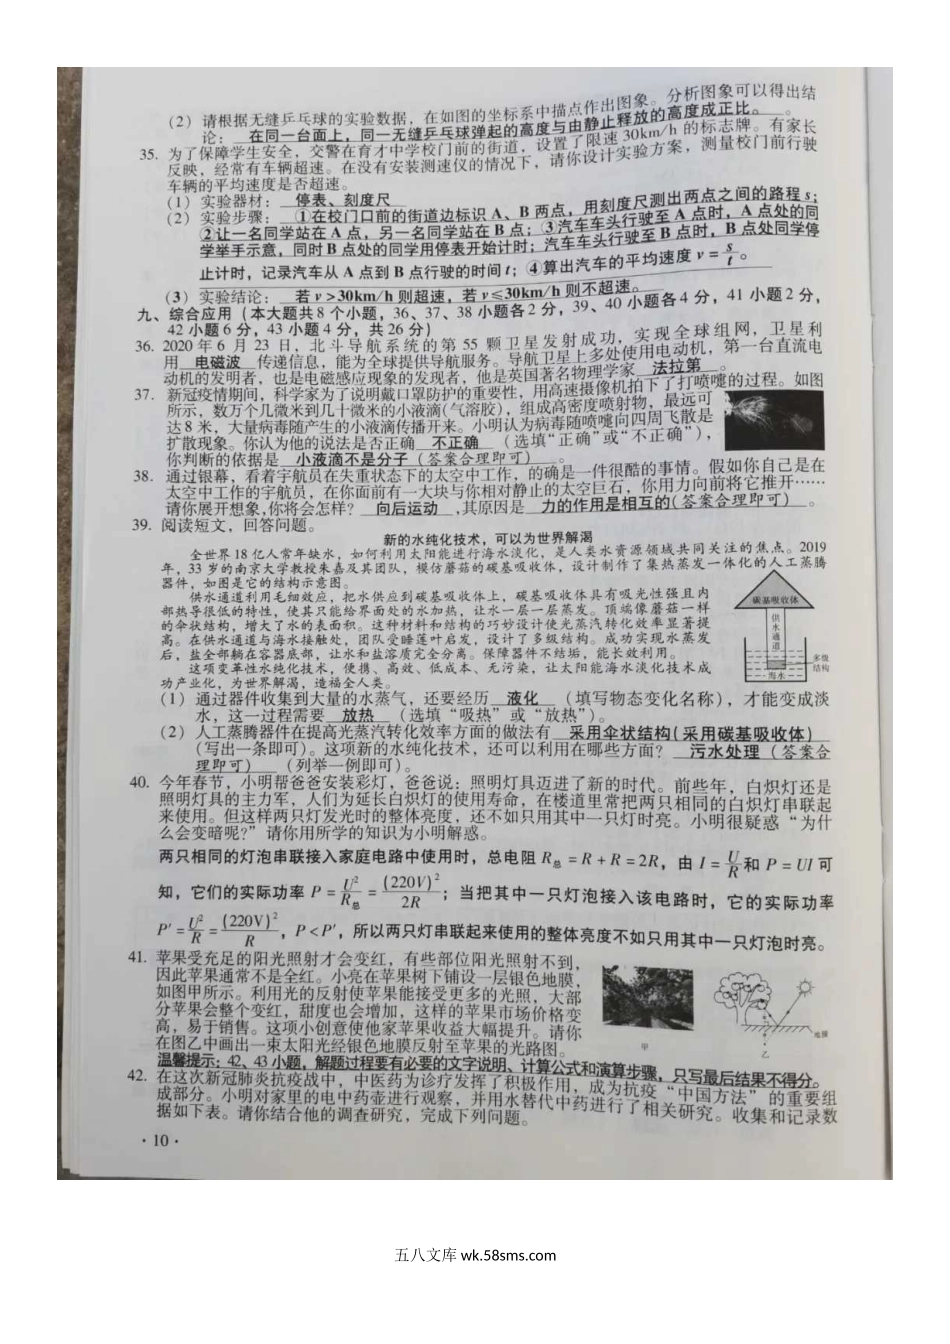 (2) 请根据无缝乒乓球的实验数据，在如图的坐标系中描点作出图象。分析图象可以得出结
论： 在同一台面上，同一无缝乒乓球弹起的高度与由静止释放的高度成正比。 。
35. 为了保障学生安全，交警在育才中学校门前的街道，设置了限速 30km/h 的标志牌。有家长
反映，经常有车辆超速。在没有安装测速仪的情况下，请你设计实验方案，测量校门前行驶
车辆的平均速度是否超速。
(1) 实验器材： 停表、刻度尺
(2) 实验步骤： ①在校门口前的街道边标识 A、B 两点，用刻度尺测出两点之间的路程 s；
②让一名同学站在 A 点，另一名同学站在 B 点；③汽车车头行驶至 A 点时，A 点处的同
学举手示意，同时 B 点处的同学用停表开始计时；汽车车头行驶至 B 点时，B 点处同学停
止计时，记录汽车从 A 点到 B 点行驶的时间 t；④算出汽车的平均速度 v = s/t。
(3) 实验结论： 若 v >30km/h 则超速，若 v≤30km/h 则不超速。
九、综合应用（本大题共 8 个小题，36、37、38 小题各 2 分，39、40 小题各 4 分，41 小题 2 分，
42 小题 6 分，43 小题 4 分，共 26 分）
36. 2020 年 6 月 23 日，北斗导航系统的第 55 颗卫星发射成功，实现全球组网，卫星利
用 电磁波 传递信息，能为全球提供导航服务。导航卫星上多处使用电动机，第一台直流电
动机的发明者，也是电磁感应现象的发现者，他是英国著名物理学家 法拉第 。
37. 新冠疫情期间，科学家为了说明戴口罩防护的重要性，用高速摄像机拍下了打喷嚏的过程。如图
所示，数万个几微米到几十微米的小液滴(气溶胶)，组成高密度喷射物，最远可
达 8 米，大量病毒随产生的小液滴传播开来。小明认为病毒随喷嚏向四周飞散是
扩散现象。你认为他的说法是否正确 不正确 （选填“正确”或“不正确”），
你判断的依据是 小液滴不是分子（答案合理即可） 。
38. 通过银幕，看着宇航员在失重状态下的太空中工作，的确是一件很酷的事情。假如你自己是在
太空中工作的宇航员，在你面前有一大块与你相对静止的太空巨石，你用力向前将它推开……
请你展开想象,你将会怎样？ 向后运动 ,其原因是 力的作用是相互的(答案合理即可) 。
39. 阅读短文，回答问题。
新的水纯化技术，可以为世界解渴
全世界 18 亿人常年缺水，如何利用太阳能进行海水淡化，是人类水资源领域共同关注的焦点。2019
年，33 岁的南京大学教授朱嘉及其团队，模仿蘑菇的碳基吸收体，设计制作了集热蒸发一体化的人工蒸腾
器件，如图是它的结构示意图。
供水通道利用毛细效应，把水供应到碳基吸收体上，碳基吸收体具有吸光性强且内
部热导很低的特性，使其只能给界面处的水加热，让水一层一层蒸发。顶端像蘑菇一样
的伞状结构，增大了水的表面积。这种材料和结构的巧妙设计使光蒸汽转化效率显著提
高。在供水通道与海水接触处，团队受睡莲叶启发，设计了多级结构。成功实现水蒸发
后，盐全部躺在容器底部，让水和盐溶质完全分离。保障器件不结垢，能长效利用。
这项变革性水纯化技术，便携、高效、低成本、无污染，让太阳能海水淡化技术成
功产业化，为世界解渴，造福全人类。
碳基吸收体
供水通道
多级
结构
海水
(1) 通过器件收集到大量的水蒸气，还要经历 液化 （填写物态变化名称），才能变成淡
水，这一过程需要 放热 （选填“吸热”或“放热”）。
(2) 人工蒸腾器件在提高光蒸汽转化效率方面的做法有 采用伞状结构(采用碳基吸收体)
(写出一条即可)。这项新的水纯化技术，还可以利用在哪些方面？ 污水处理（答案合
理即可） （列举一例即可）。
40. 今年春节，小明帮爸爸安装彩灯，爸爸说：照明灯具迈进了新的时代。前些年，白炽灯还是
照明灯具的主力军，人们为延长白炽灯的使用寿命，在楼道里常把两只相同的白炽灯串联起
来使用。但这样两只灯发光时的整体亮度，还不如只用其中一只灯时亮。小明很疑惑“为什
么会变暗呢？”请你用所学的知识为小明解惑。
两只相同的灯泡串联接入家庭电路中使用时，总电阻 R总 = R + R = 2R，由 I = U/R 和 P = UI 可
知，它们的实际功率 P = U²/R总 = (220V)²/2R；当把其中一只灯泡接入该电路时，它的实际功率
P' = U²/R = (220V)²/R，P < P'，所以两只灯串联起来使用的整体亮度不如只用其中一只灯泡时亮。
41. 苹果受充足的阳光照射才会变红，有些部位阳光照射不到，
因此苹果通常不是全红。小亮在苹果树下铺设一层银色地膜，
如图甲所示。利用光的反射使苹果能接受更多的光照，大部
分苹果会整个变红，甜度也会增加，这样的苹果市场价格变
高，易于销售。这项小创意使他家苹果收益大幅提升。请你
在图乙中画出一束太阳光经银色地膜反射至苹果的光路图。
甲
地膜
乙
温馨提示：42、43 小题，解题过程要有必要的文字说明、计算公式和演算步骤，只写最后结果不得分。
42. 在这次新冠肺炎抗疫战中，中医药为诊疗发挥了积极作用，成为抗疫“中国方法”的重要组
成部分。小明对家里的电中药壶进行观察，并用水替代中药进行了相关研究。收集和记录数
据如下表。请你结合他的调查研究，完成下列问题。
· 10 ·
五八文库 wk.58sms.com